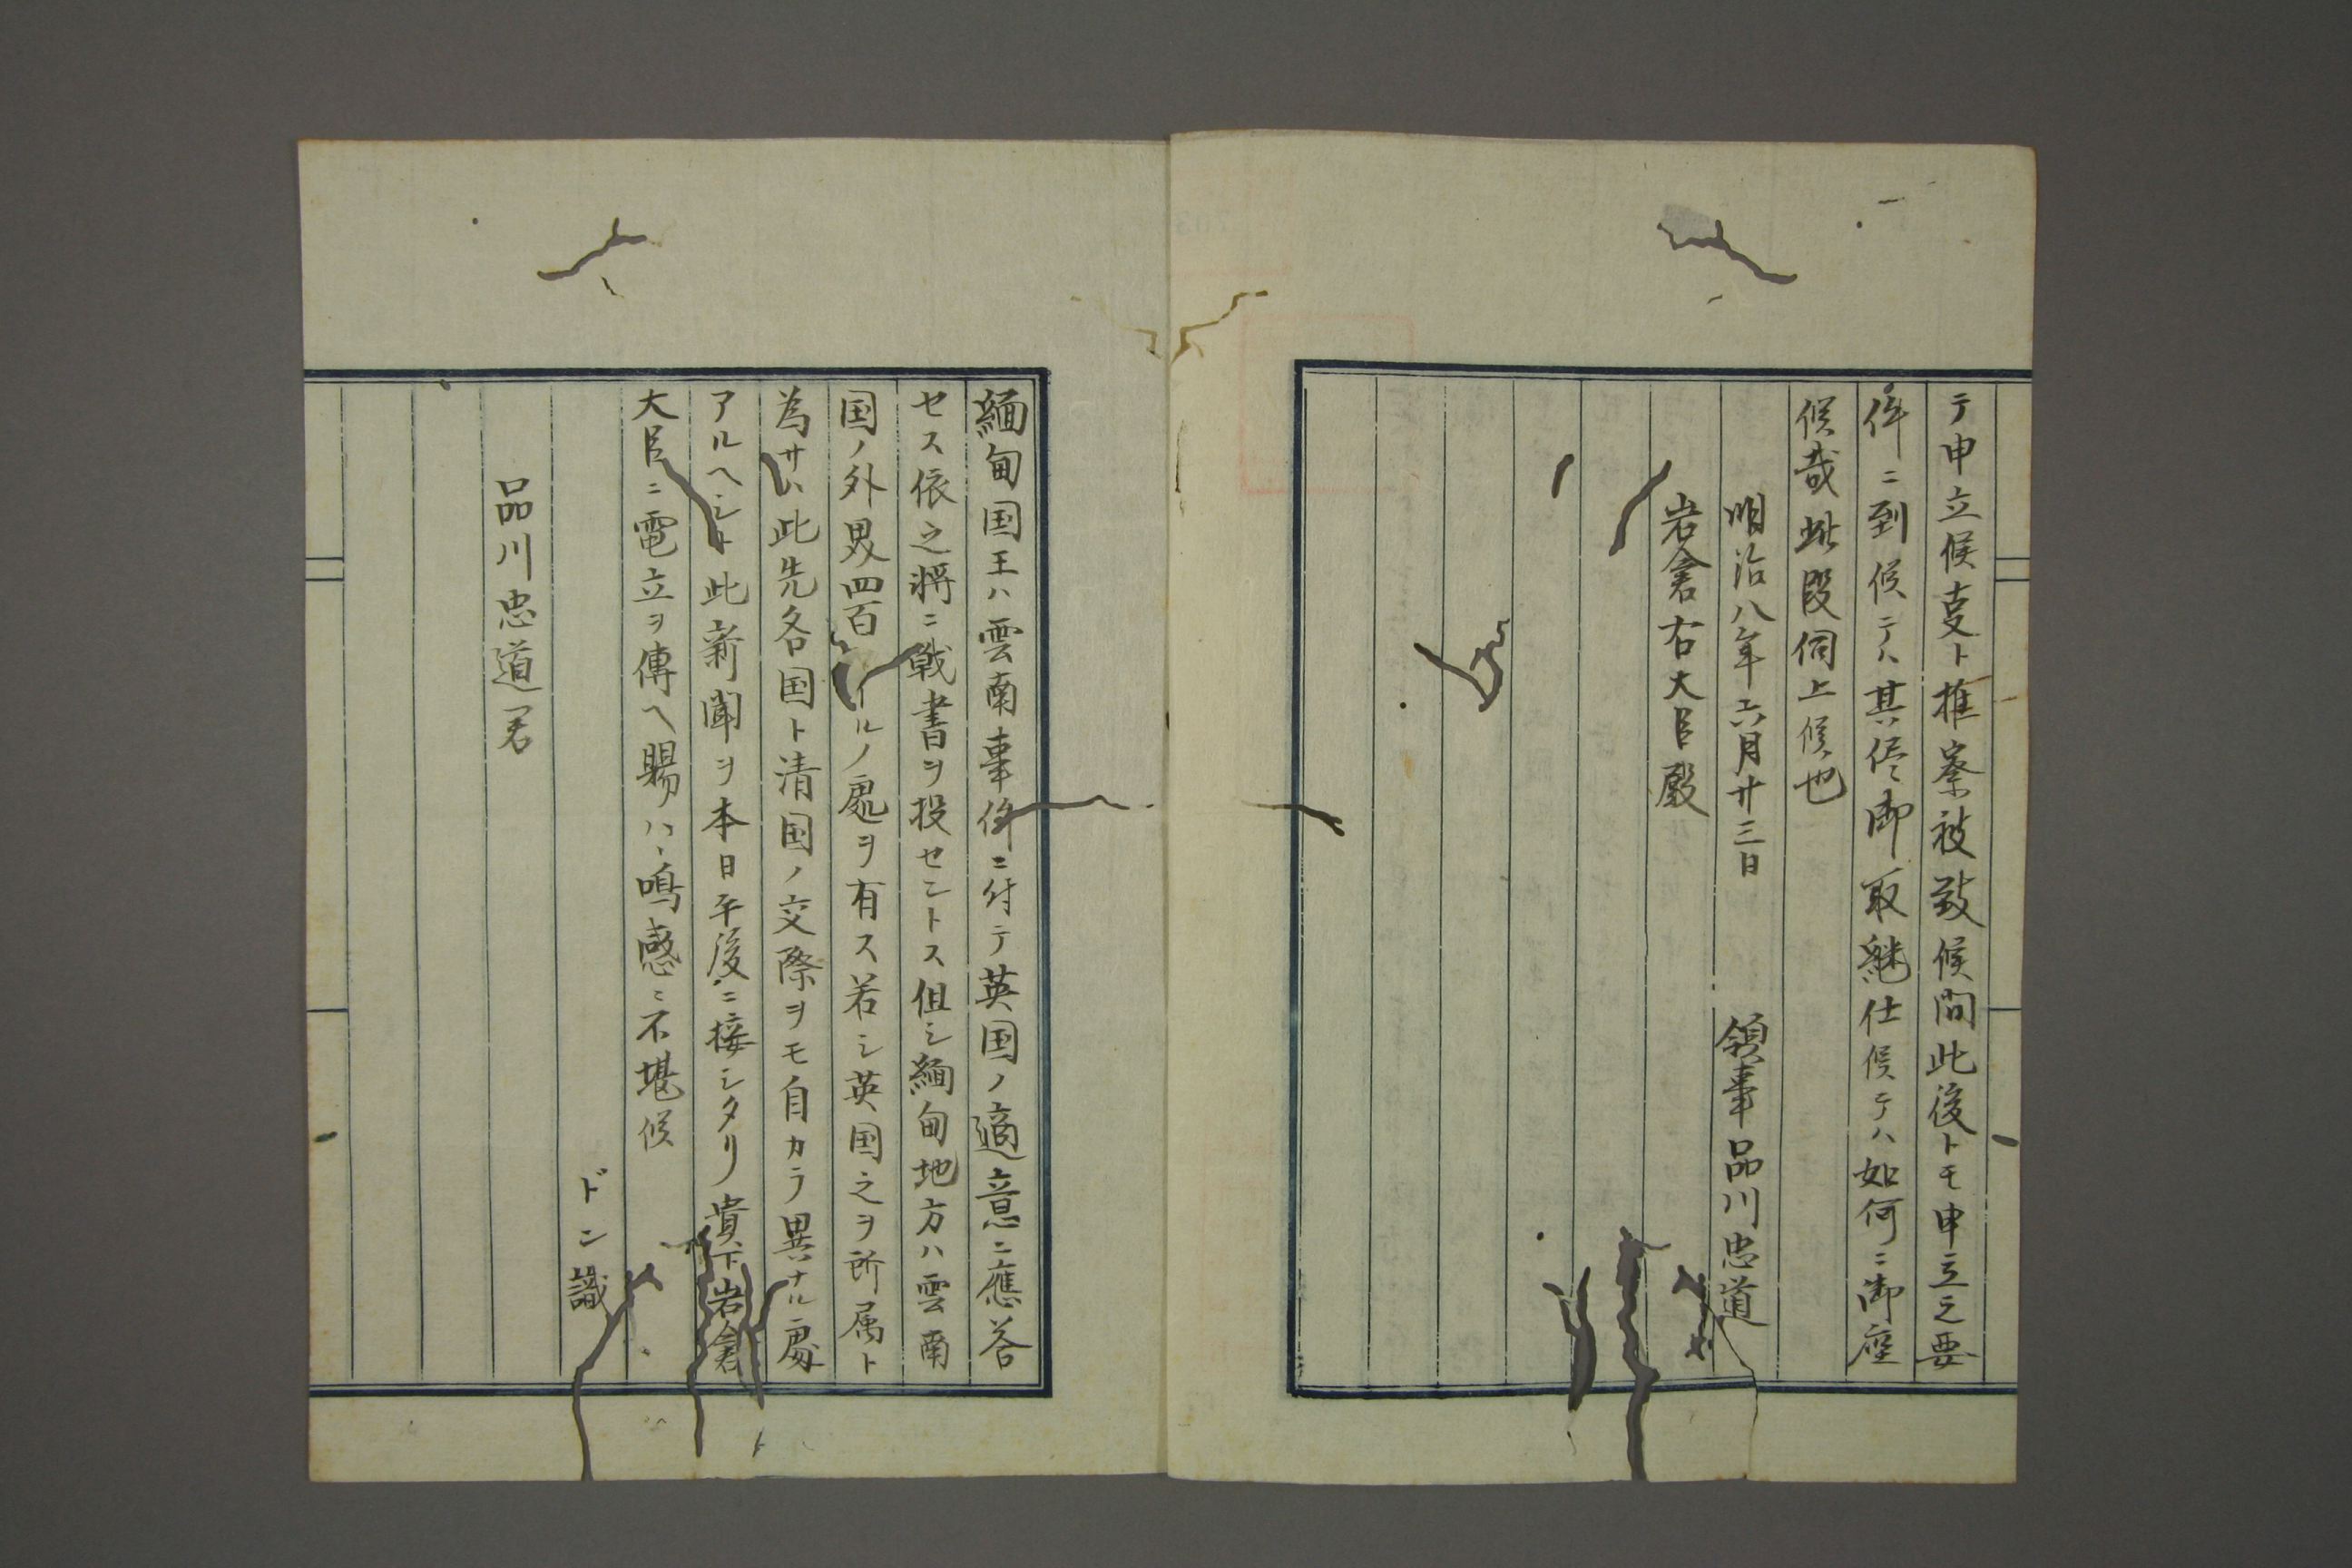 テ申立候事ト推察被致候間此後トモ申立之要
件ニ到候テハ其侭御取継仕候テハ如何ニ御座
候哉此段伺上候也
明治八年六月廿三日　領事品川忠道
岩倉右大臣殿
緬甸国王ハ雲南事件ニ付テ英国ノ適意ニ應答
セス依之将ニ戦書ヲ投セントス但シ緬甸地方ハ雲南
国ノ外畏四百イルノ處ヲ有ス若シ英国之ヲ所属ト
為サハ此先各国ト清国ノ交際ヲモ自カラ異ナル處
アルヘシト此新聞ヲ本日午後ニ接シタリ貴下岩倉
大臣ニ電立ヲ傳ヘ賜ハヽ鳴感ニ不堪候
ドン識
品川忠道君